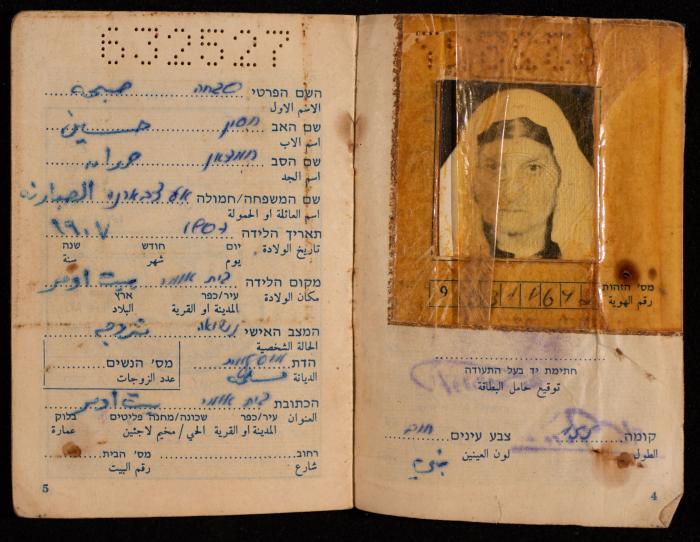 מס׳ הזהות
رقم الهوية
9
חתימת יד בעל התעודה
توقيع حامل البطاقة
קומה 155 צבע עינים חום
الطول لون العينين
بني
4
632527
השם הפרטי סבחה صبحه
الاسم الاول
שם האב חסין حسين
اسم الاب
שם הסב חמדאן حمدان
اسم الجد
שם המשפחה/חמולה
اسم العائلة او الحمولة
תאריך הלידה 1907 ١٩٠٧
تاريخ الولادة יום חודש שנה
يوم شهر سنة
מקום הלידה בית אומר بيت اومر
مكان الولادة עיר/כפר ארץ
المدينة او القرية البلاد
המצב האישי נשואה
الحالة الشخصية
הדת מוסלמית
الديانة
מס׳ הנשים
عدد الزوجات
הכתובת בית אומר بيت اومر
العنوان עיר/כפר שכונה/מחנה פליטים בלוק
المدينة او القرية الحي/مخيم لاجئين عمارة
רחוב מס׳ הבית
شارع رقم البيت
5